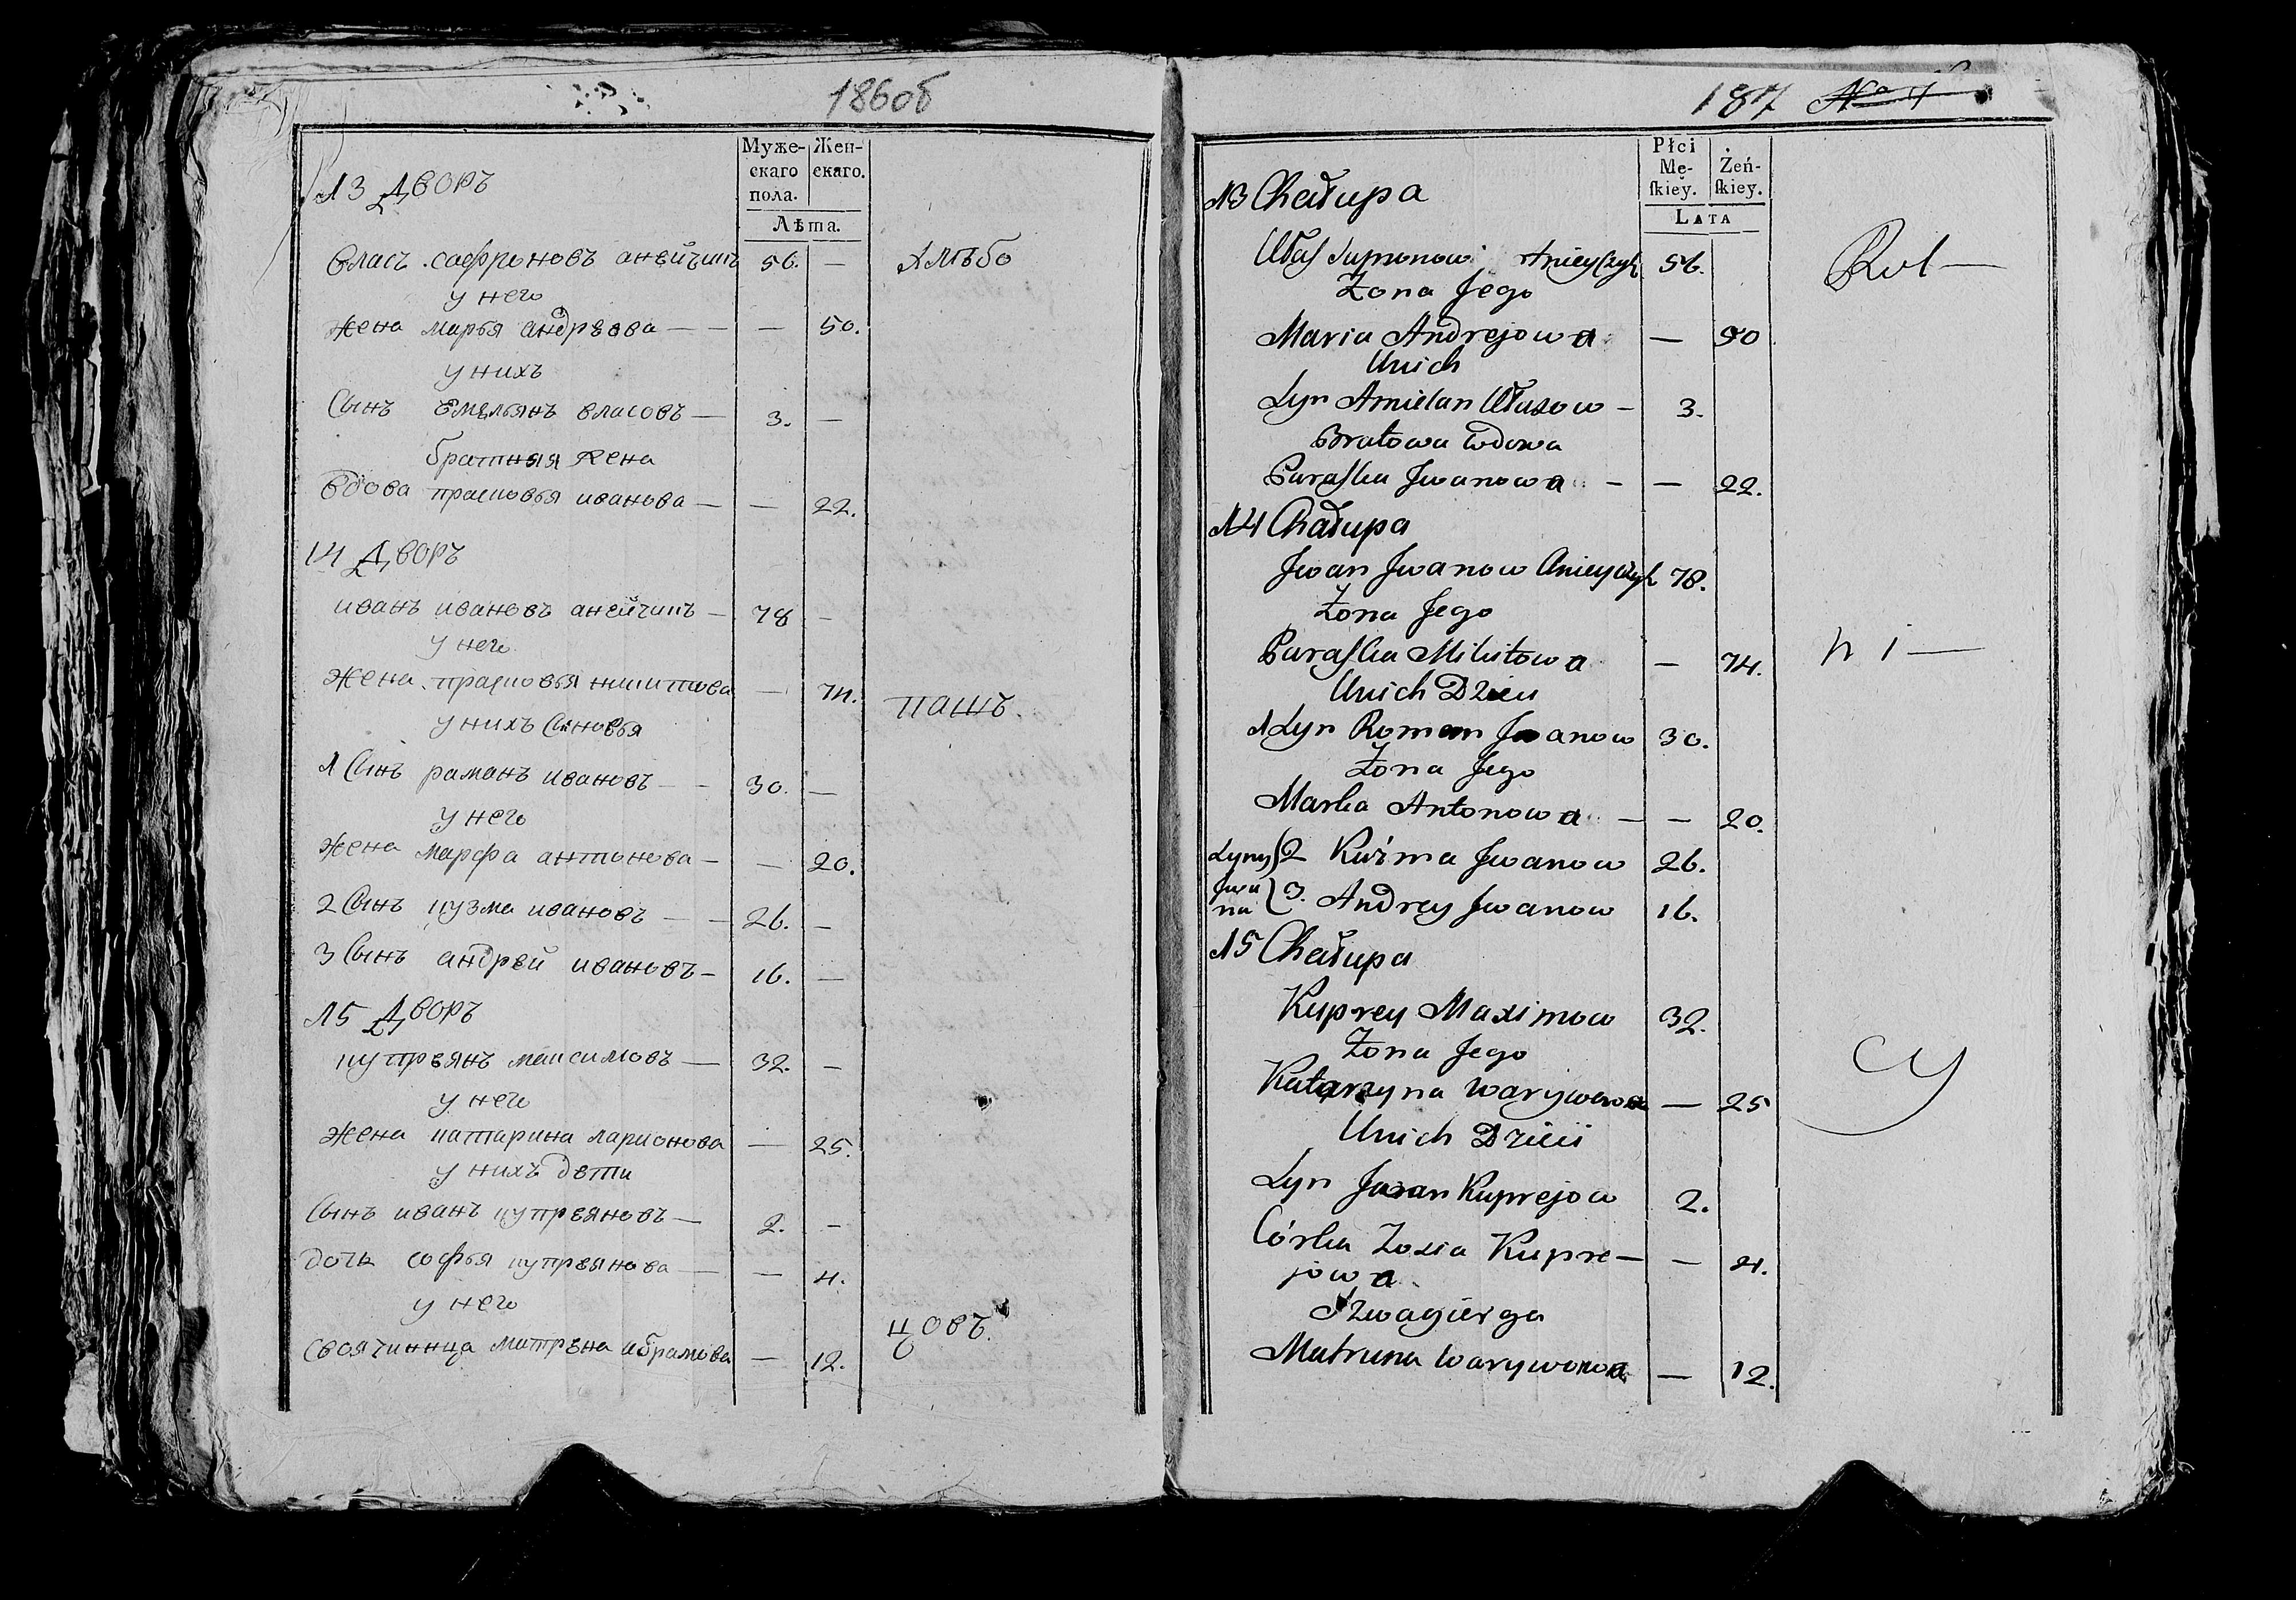 186об
Муже-
скаго
пола.
Жен-
скаго.
Лѣта.
13 Дворъ
власъ сафроновъ анейчикъ 56. — хлѣбо
у него
жена марья андрѣева — — — 50.
у нихъ
Сынъ Емельянъ власовъ — 3. —
братняя жена
вдова прасковья иванова — — 22.
14 Дворъ
иванъ ивановъ анейчикъ — 78 —
у него
жена прасковья никитова — 74. пашъ.
у нихъ Сыновья
1 Сынъ раманъ ивановъ — — 30. —
у него
жена марфа антонова — — 20.
2 Сынъ кузма ивановъ — — 26. —
3 Сынъ андрей ивановъ — 16. —
15 Дворъ
купреянъ максимовъ — 32. —
у него
жена катарина ларионова — 25.
у нихъ дети
Сынъ иванъ купреяновъ — 2. —
дочь софья купреянова — — 4.
у него
своячинница матрена абрамова — 12. цовъ.
187 N 1
Płci
Mę-
ſkiey.
Żeń-
ſkiey.
Lata
13 Chałupa
Ułas Supronow Anieyczyk 56. Rol —
Żona Jego
Maria Andrejowa — 50
Unich
Syn Amielan Ułasow — 3.
Bratowa wdowa
Paraska Jwanowa — — 22.
14 Chałupa
Jwan Jwanow Anieyczyk 78.
Żona Jego
Paraska Mikitowa — 74. ni —
Unich Dzieci
1 Syn Roman Jwanow 30.
Żona Jego
Marta Antonowa — — 20.
Syny Jwa na 2 Kuźma Jwanow 26.
3. Andrey Jwanow 16.
15 Chałupa
Kuprey Maximow 32.
Żona Jego cy
Katarzyna Warywonowa — 25
Unich Dzieci
Syn Jwan Kuprejow 2.
Córka Zosia Kupre— — 4.
jowa
Szwagierga
Matruna Warywonowa — 12.